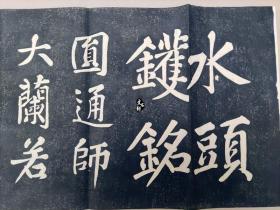 水頭
鑊銘
圓通師
大蘭若